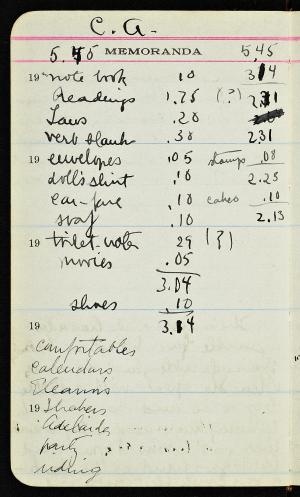 C. A.
5.45 MEMORANDA 5,45
19 note book .10 3.14
Readings 1.75 (?) 2.31
Laws .20
verb blank .30 2.31
19 envelopes .05 stamps .08
doll's shirt .10 2.23
car-fare .10 cakes .10
soap .10 2.13
19 toilet-water 29 (?)
movies .05
3.04
shoes .10
19 3.14
comfortables
calendars
Eleanor's
19
Adelaide
party
riding